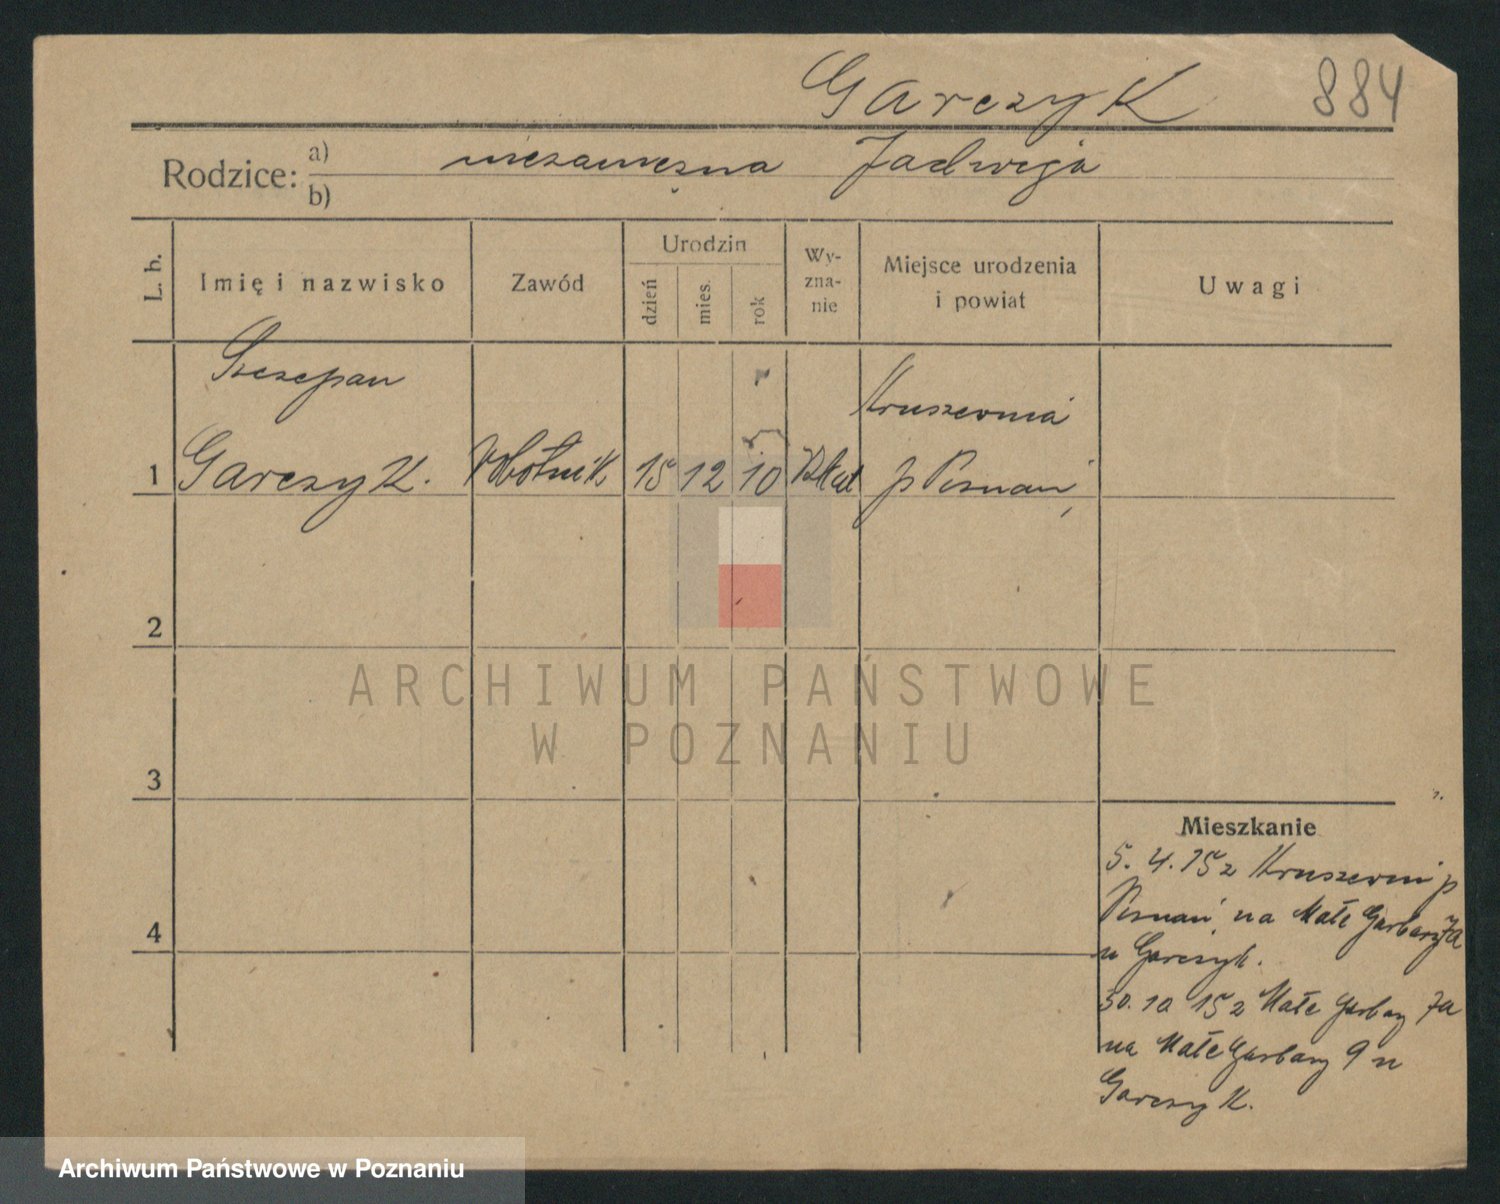 Garczyk 884
Rodzice: a) niezamężna Jadwiga
b)
L. b.
Imię i nazwisko
Zawód
Urodzin
dzień
mies.
rok
Wy-
zna-
nie
Miejsce urodzenia
i powiat
Uwagi
Szczepan
Kruszewnia
1 Garczyk. robotnik 15 12 10 p Poznań
2
3
4
Mieszkanie
5. 4. 15 z Kruszewni p
Poznań na Małe Garbary 7a
u Garczyk.
30. 10 15 z Małe Garbary 7a
na Małe Garbary 9 u
Garczyk.
ARCHIWUM PAŃSTWOWE
W POZNANIU
Archiwum Państwowe w Poznaniu